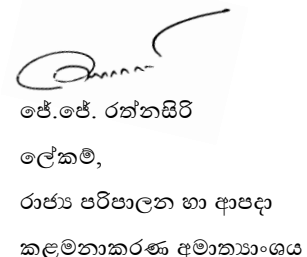 ජේ.ජේ. රත්නසිරි
ලේකම්,
රාජ්‍ය පරිපාලන හා ආපදා
කළමනාකරණ අමාත්‍යාංශය